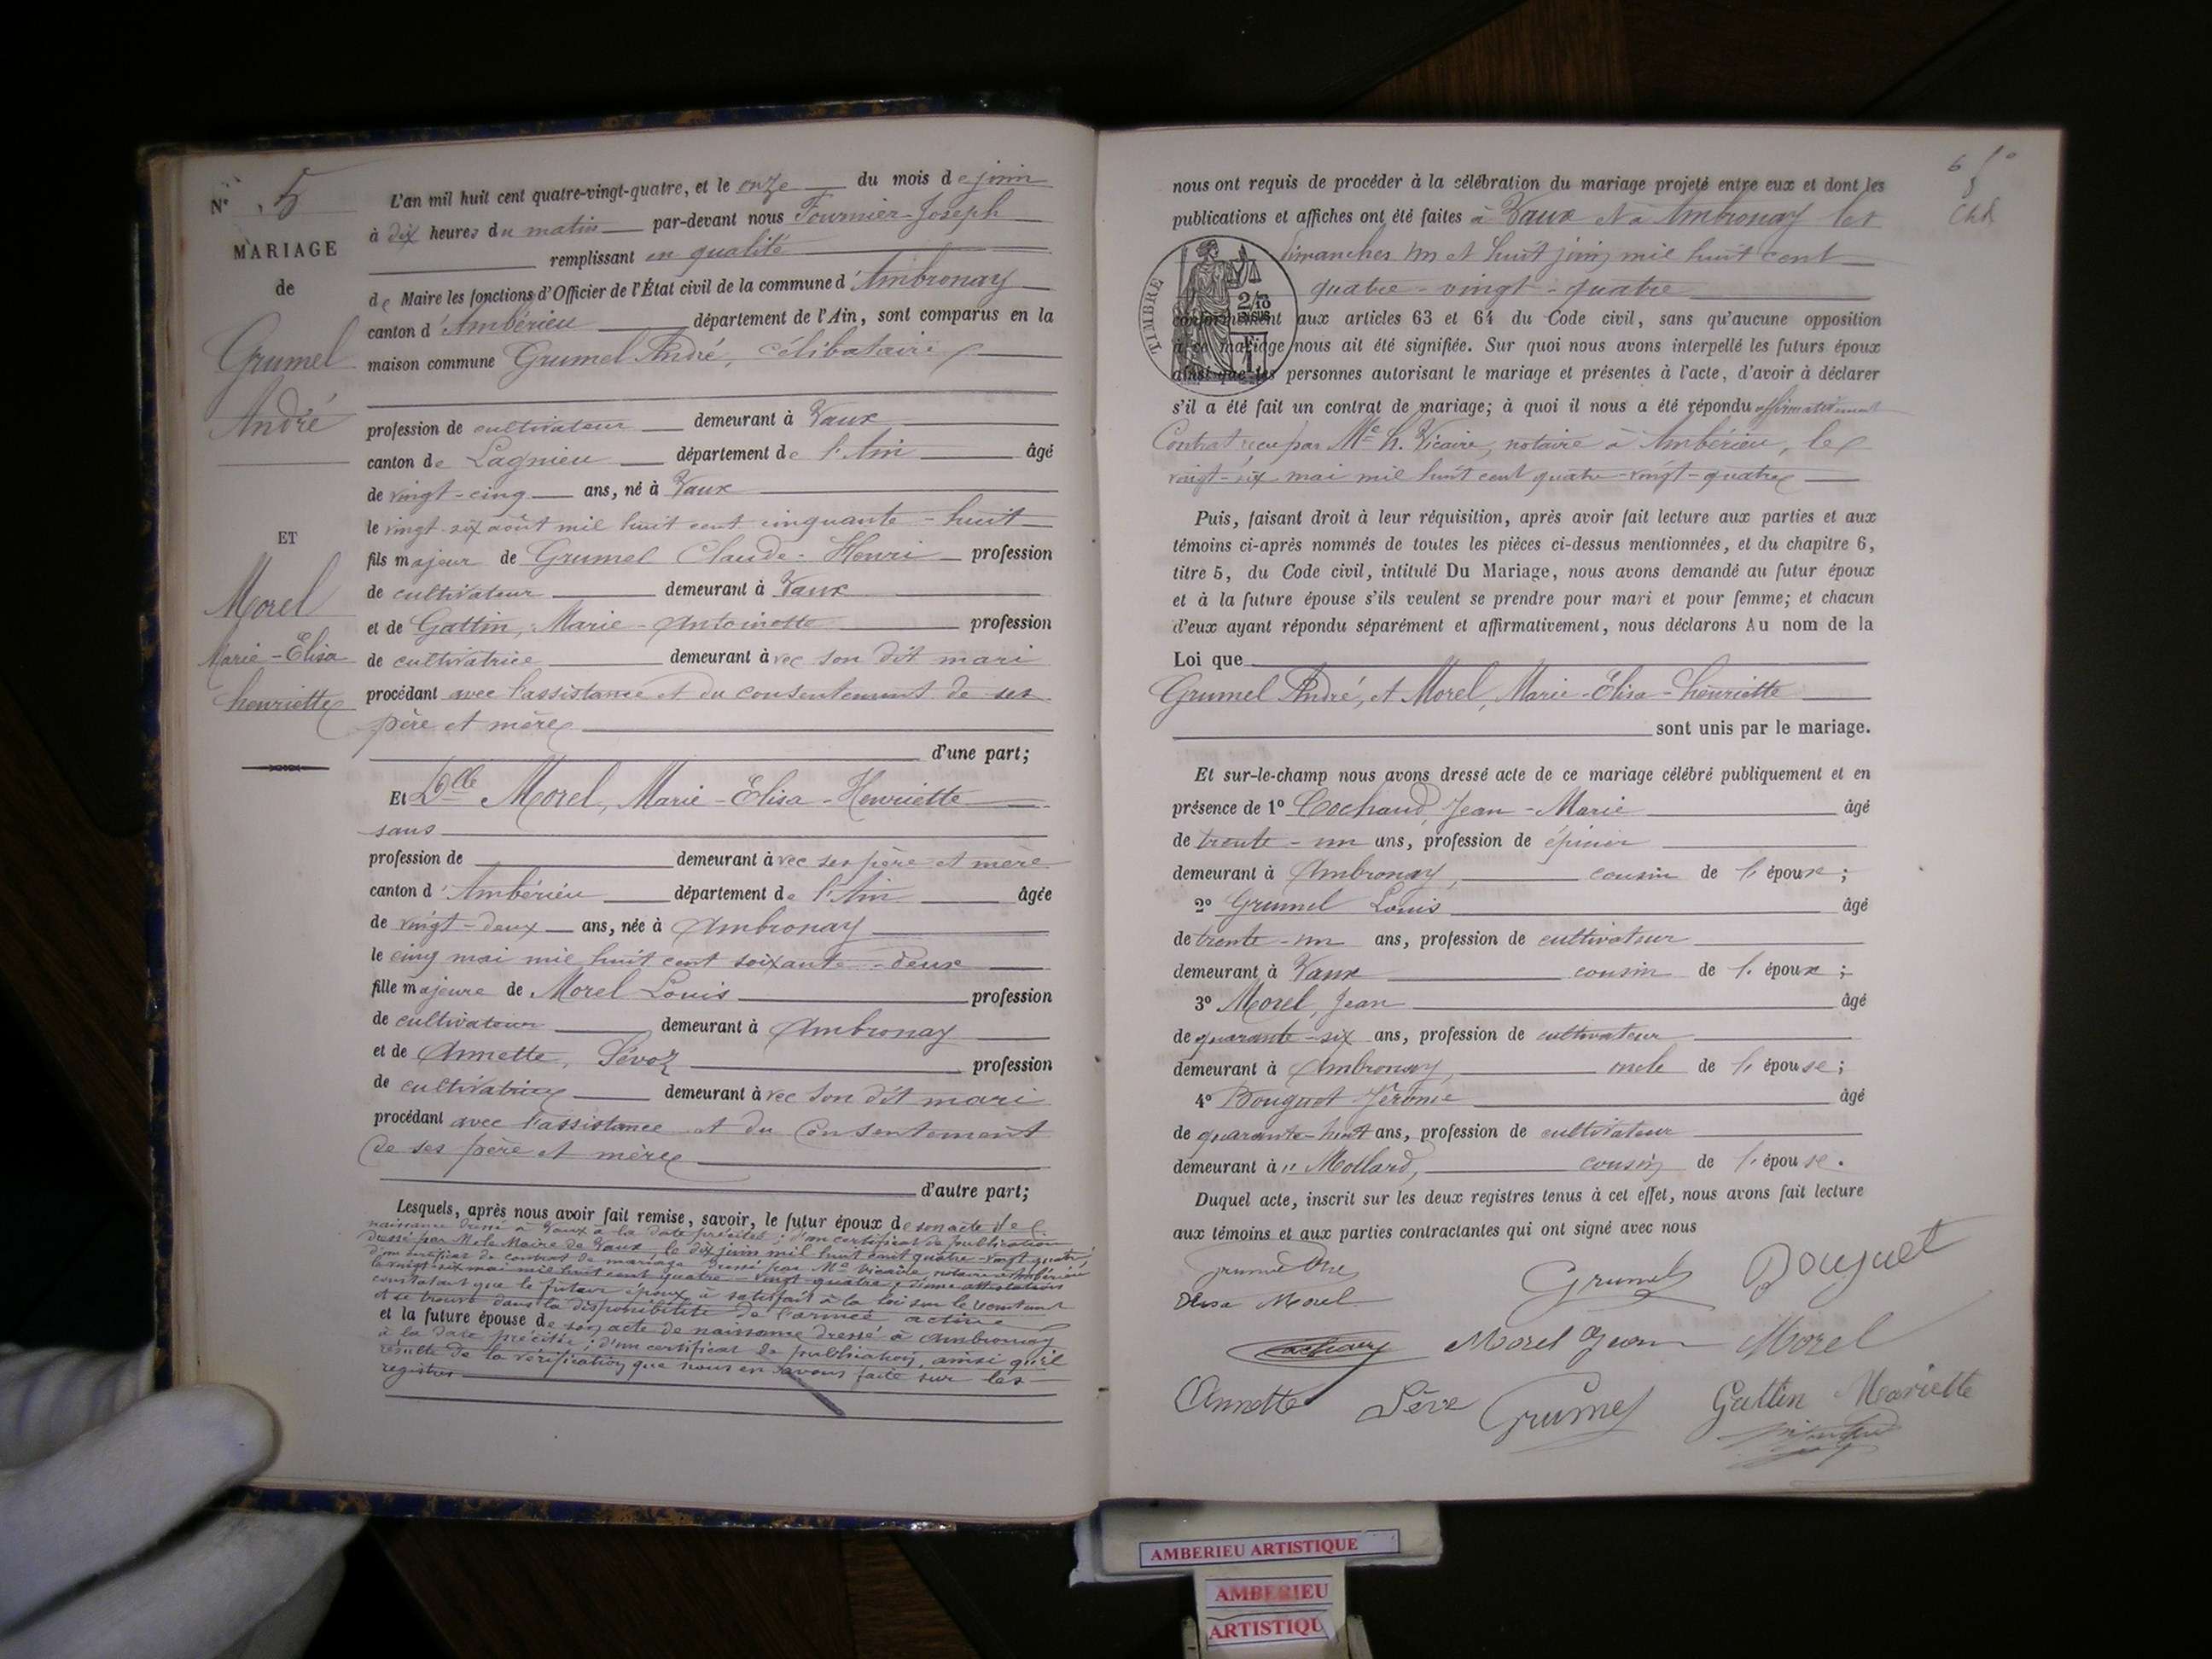 Nº 5
MARIAGE
de
Grumel
André
ET
Morel
Marie-Elisa
henriette
L'an mil huit cent quatre-vingt-quatre, et le onze du mois de juin
à dix heures du matin par-devant nous Fournier Joseph
remplissant en qualité
de Maire les fonctions d'Officier de l'État civil de la commune d'Ambronay
canton d'Ambérieu département de l'Ain, sont comparus en la
maison commune Grumel André, célibataire
profession de cultivateur demeurant à Vaux
canton de Lagnieu département de l'Ain âgé
de vingt-cinq ans, né à Vaux
le vingt-six août mil huit cent cinquante-huit
fils majeur de Grumel Claude-Henri profession
de cultivateur demeurant à Vaux
et de Gattin, Marie-Antoinette profession
de cultivatrice demeurant avec son dit mari
procédant avec l'assistance et du consentement de ses
père et mère
d'une part;
Et Dlle Morel, Marie-Elisa-Henriette
sans
profession de demeurant avec ses père et mère
canton d'Ambérieu département de l'Ain âgée
de vingt-deux ans, née à Ambronay
le cinq mai mil huit cent soixante-deux
fille majeure de Morel Louis profession
de cultivateur demeurant à Ambronay
et de Annette, Sévoz profession
de cultivatrice demeurant avec son dit mari
procédant avec l'assistance et du consentement
de ses père et mère
d'autre part;
Lesquels, après nous avoir fait remise, savoir, le futur époux de son acte de
naissance dressé à Vaux à la date précitée; d'un certificat de publication
dressé par Mr le Maire de Vaux, le dix juin mil huit cent quatre-vingt quatre;
d'un certificat de contrat de mariage dressé par Me Vicaire, notaire à Ambérieu
le vingt-six mai mil huit cent quatre-vingt quatre; d'une attestation
constatant que le futur époux a satisfait à la loi sur le recrutement
et se trouve dans la disponibilité de l'armée active
et la future épouse de son acte de naissance dressé à Ambronay
à la date précitée; d'un certificat de publication, ainsi qu'il
résulte de la vérification que nous en avons faite sur les
registres
nous ont requis de procéder à la célébration du mariage projeté entre eux et dont les
publications et affiches ont été faites à Vaux et à Ambronay les
dimanches un et huit juin mil huit cent
quatre-vingt-quatre
TIMBRE
2/10
conformément aux articles 63 et 64 du Code civil, sans qu'aucune opposition
à ce mariage nous ait été signifiée. Sur quoi nous avons interpellé les futurs époux
ainsi que les personnes autorisant le mariage et présentes à l'acte, d'avoir à déclarer
s'il a été fait un contrat de mariage; à quoi il nous a été répondu affirmativement
Contrat reçu par Me h. Vicaire, notaire à Ambérieu, le
vingt-six mai mil huit cent quatre-vingt-quatre
Puis, faisant droit à leur réquisition, après avoir fait lecture aux parties et aux
témoins ci-après nommés de toutes les pièces ci-dessus mentionnées, et du chapitre 6,
titre 5, du Code civil, intitulé Du Mariage, nous avons demandé au futur époux
et à la future épouse s'ils veulent se prendre pour mari et pour femme; et chacun
d'eux ayant répondu séparément et affirmativement, nous déclarons Au nom de la
Loi que
Grumel André, et Morel, Marie-Elisa-henriette
sont unis par le mariage.
Et sur-le-champ nous avons dressé acte de ce mariage célébré publiquement et en
présence de 1º Cochaud, Jean-Marie âgé
de trente-un ans, profession de épicier
demeurant à Ambronay, cousin de l'époux;
2º Grumel Louis âgé
de trente-un ans, profession de cultivateur
demeurant à Vaux cousin de l'époux;
3º Morel, Jean âgé
de quarante-six ans, profession de cultivateur
demeurant à Ambronay, oncle de l'épouse;
4º Bouguet Jérôme âgé
de quarante-huit ans, profession de cultivateur
demeurant à " Mollard, cousin de l'épouse.
Duquel acte, inscrit sur les deux registres tenus à cet effet, nous avons fait lecture
aux témoins et aux parties contractantes qui ont signé avec nous
Grumel Bouguet
Elisa Morel
Morel Jean Morel
Annette Sève Grumel Gattin Mariette
AMBERIEU ARTISTIQUE
AMBERIEU
ARTISTIQU